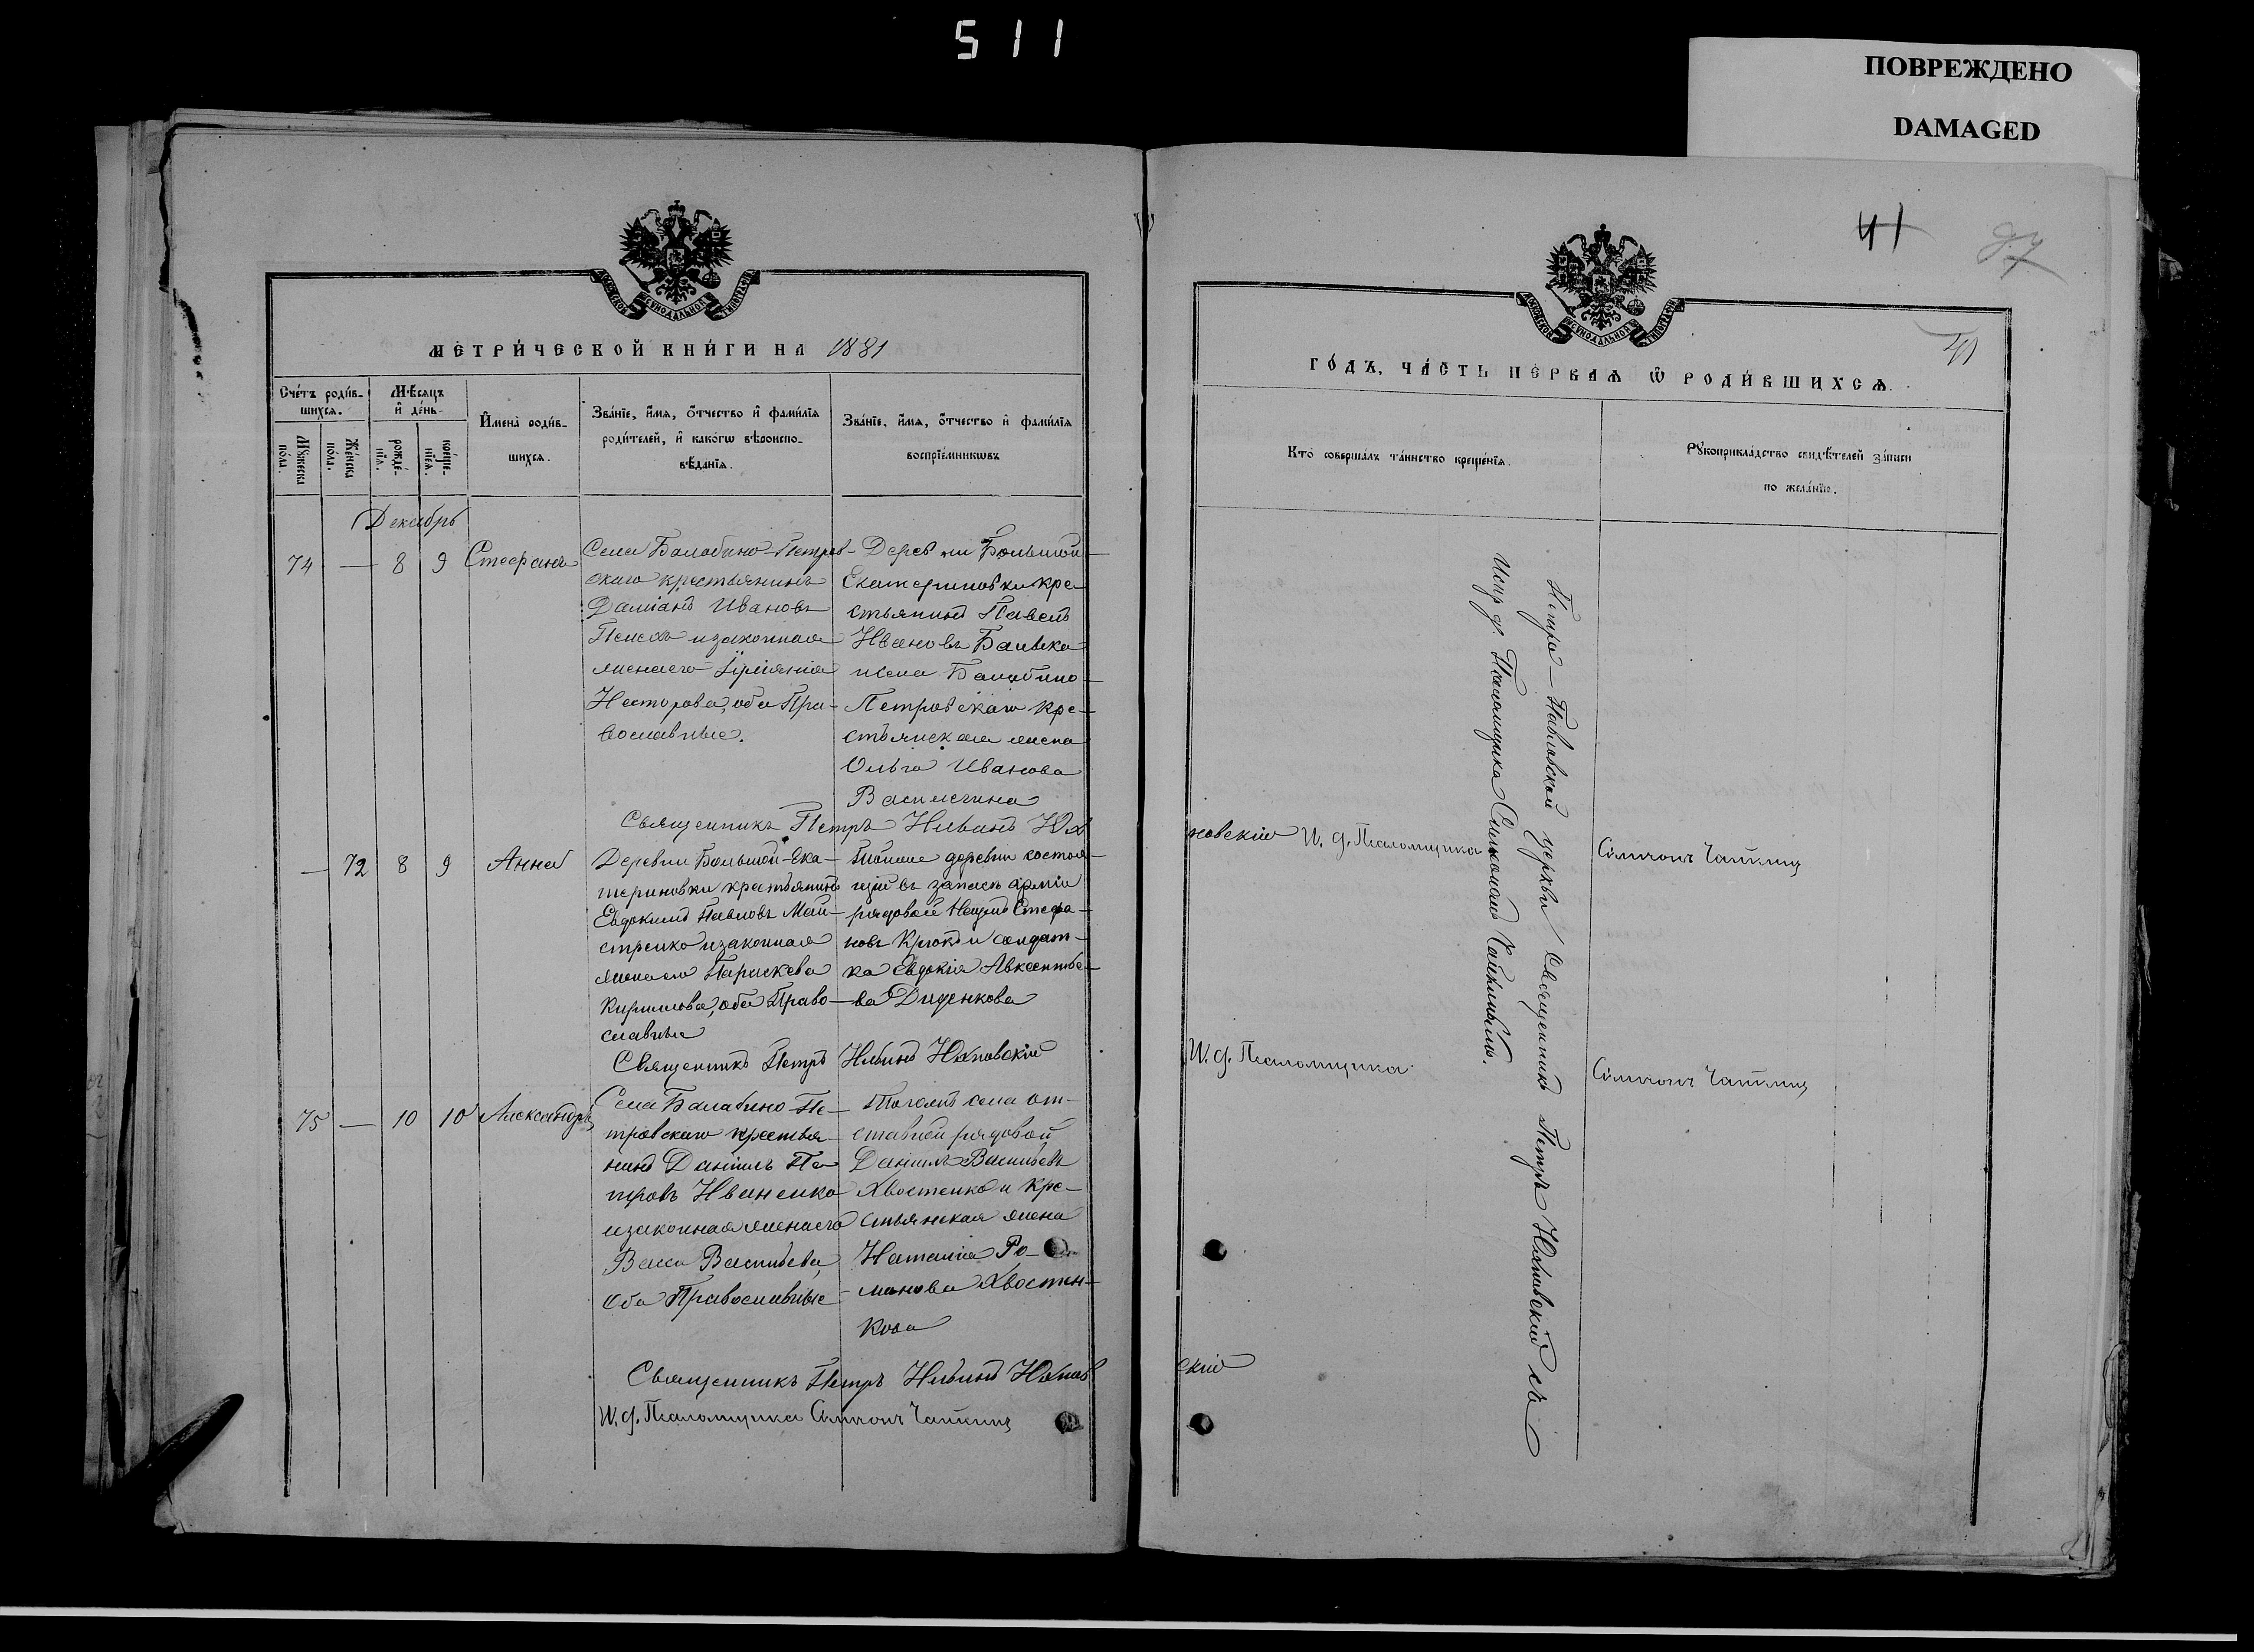 511
ПОВРЕЖДЕНО
DAMAGED
МЕТРИ́ЧЕСКОЙ КНИ́ГИ НА 1881
Сче́тъ роди́в-
шихся.
Мѣ́сяцъ
и҆ де́нь
И҆мена̀ роди́в-
шихся.
Зва́нїе, и҆́мѧ, ѻ҆́тчество и҆ фами́лїѧ
роди́телей, и҆ како́гѡ вѣроиспо-
вѣ́данїѧ.
Зва́нїе, и҆́мѧ, ѻ҆́тчество и҆ фами́лїѧ
воспрїе́мникѡвъ
Мꙋ́жеска
по́ла.
Же́нска
по́ла.
рожде́-
нїѧ.
креще́-
нїѧ.
Декабрь
74 — 8 9 Стефанъ
Села Балабино-Петров-
скаго крестьянинъ
Даміанъ Ивановъ
изаконная
жена его
Несторова, оба Пра-
вославные.
Деревни Большой-
Екатериновки кре
стьянинъ Павелъ
Ивановъ
исела Балабино-
Петровскаго кре-
стьянская жена
Ольга Иванова
Священникъ Петръ Ильинъ Юх
— 72 8 9 Анна
Деревни Большой-Ека-
териновки крестьянинъ
Евдокимъ Павловъ Май-
стренко изаконная
жена его Параскева
Кирилова, оба Право-
славные
деревни состоя-
щій въ запасѣ арміи
рядовой Стефа-
новъ Крюкъ и солдат-
ка Евдокія Авксентье-
ва Диденкова
Священникъ Петръ Ильинъ Юхновскій
75 — 10 10 Александръ
Села Балабино-Пе-
тровскаго крестья-
нинъ Даніилъ Пе
тровъ Иваненко
изаконная жена его
Васса Васильева,
Оба Православные
Тогожъ села от-
ставной рядовой
Даніилъ Васильевъ
Хвостенко и кре-
стьянская жена
Наталія Ро-
манова Хвостен-
кова
Священникъ Петръ Ильинъ Юхнов
И. д. Псаломщика Симеонъ Чайкинъ
41
87
41
ГО́ДЪ, ЧА́СТЬ ПЕ́РВАѦ Ѡ҆ РОДИ́ВШИХСѦ.
Кто̀ соверша́лъ та́инство креще́нїѧ.
Рꙋкоприкла́дство свидѣ́телей за́писи
по жела́нїю.
Петро-Павловской церкви Священникъ Петръ Юхновскій съ
Испр. д. Псаломщика Симеономъ Чайкинымъ.
новскій И. д. Псаломщика Симеонъ Чайкинъ
И. д. Псаломщика Симеонъ Чайкинъ
скій